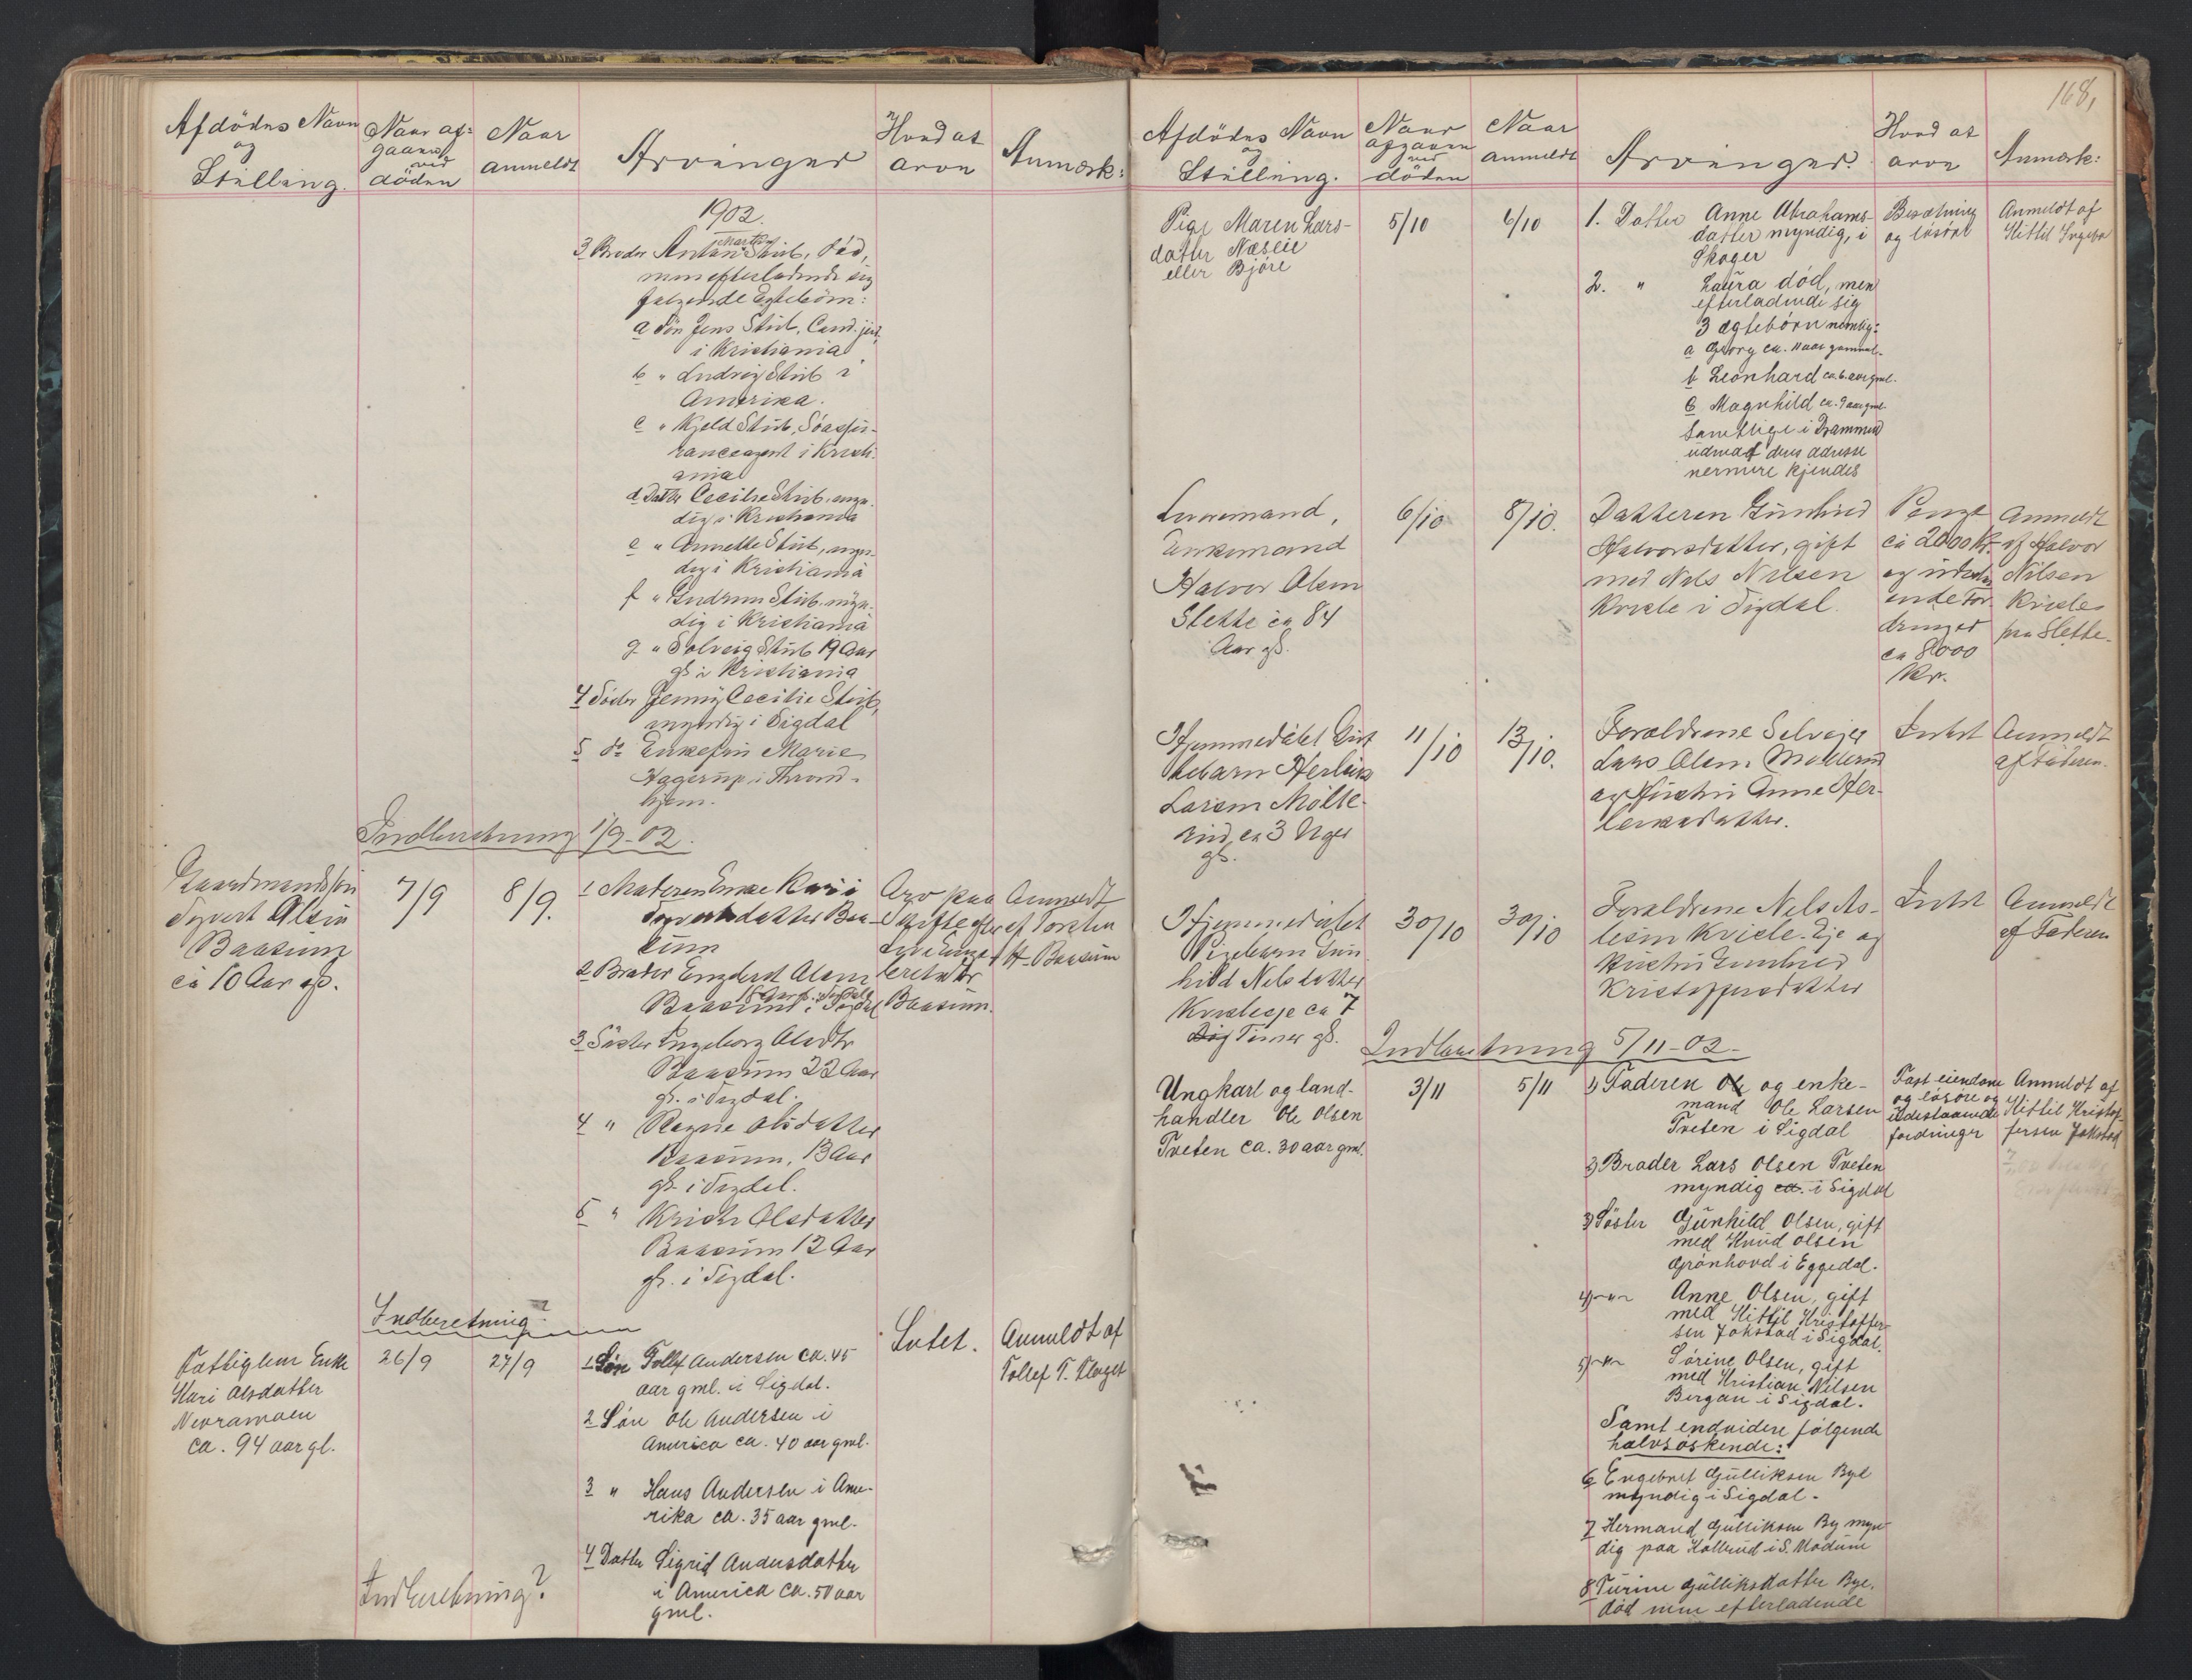 Afdödes Navn
og
Stilling.
Naar af-
gaaen
ved
döden
Naar
anmeldt
Arvinger
Hvad at
arve
Anmærk:
1902.
3 Broder Anton Martin Stub, död,
men efterladende sig
følgende Egtebörn:
a Sön Jens Stub, Cand. jur.
i Kristiania
b " Ludvig Stub i
Amerika.
c " Kjeld Stub, Söassu-
ranceagent i Kristi-
ania
d Datter Cecilie Stub, myn-
dig i Kristiania
e " Annette Stub, myn-
dig i Kristiania
f " Gudrun Stub, myn-
dig i Kristiania
g " Solveig Stub 19 Aar
gl. i Kristiania
4 Söster Jenny Cecilie Stub,
myndig i Sigdal
5 do Enkefru Marie
Hagerup i Trond-
hjem.
Indberetning 1/9-02.
Gaardmandssön
Syvert Olsen
Baasum
ca 10 Aar gl.
7/9
8/9.
1 Moderen Enke Kari
Syvertsdatter Baa-
sum
2 Broder Engebret Olsen
18 Aar gl. i Sigdal
Baasum i Sigdal
3 Söster Ingeborg Olsdtr
Baasum 22 Aar
gl. i Sigdal.
4 " Ragne Olsdatter
Baasum, 13 Aar
gl. i Sigdal.
5 " Kristi Olsdatter
Baasum 12 Aar
gl. i Sigdal.
Arv paa
Skifte efter
Baasum.
Anmeldt
af Torsten
H. Baasum
Indberetning?
Fattiglem Enke
Kari Olsdatter
Nevramoen
ca. 94 aar gl.
26/9
27/9
1 Sön Tollef Andersen ca. 45
aar gml. i Sigdal.
2 Sön Ole Andersen i
America ca. 40 aar gml.
3 " Hans Andersen i Ame-
rika ca. 35 aar gml.
4 Datter Sigrid Andersdatter
i America ca. 50 aar
gml.
Intet.
Anmeldt af
Tollef T. Flaget
Indberetning?
168,
Afdödes Navn
og
Stilling.
Naar
afgaaen
ved
döden
Naar
anmeldt
Arvinger.
Hvad at
arve
Anmærk:
Pige Maren Lars-
datter Næseie
eller Björe
5/10
6/10
1. Datter Anne Abrahams-
datter myndig, i
Skoger
2. " Laura död, men
efterladende sig
3 ægtebörn nemlig:
a Georg ca. 11 aar gammel.
b Leonhard ca. 6 aar gml.
c Magnhild ca. 9 aar gml.
samtlige i Drammen
uden at deres adresse
nermere kjendes
Besætning
og lösöre
Anmeldt af
Kittil
Enkemand
Halvor Olsen
Slette ca 84
Aar gl.
6/10
8/10.
Datteren Gunhild
Halvorsdatter, gift
med Nils Nilsen
Kvisle i Sigdal.
Penge
ca 2000 Kr.
og udestaa-
ende For-
dringer
ca 8000
Kr.
Anmeldt
af Halvor
Nilsen
Kvisle
paa Slette.
Hjemmedöbt Gut-
tebarn Herleik
Larsen Mölle-
rud, ca 3 Uger
gl.
11/10
13/10.
Forældrene Selveier
Lars Olsen Möllerud
og Hustru Anne Her-
leiksdatter.
Intet
Anmeldt
af Faderen.
Hjemmedöbt
Pigebarn Gun-
hild Nilsdatter
Kvisleeje ca 7
Dag Timer gl.
30/10
30/10
Forældrene Nils As-
lesen Kvisle-Eje og
Hustru Gunhild
Kristoffersdatter
Intet
Anmeldt
af Faderen
Indberetning 5/11-02.
Ungkarl og land-
handler Ole Olsen
Tveten ca. 30 aar gml.
3/11
5/11
1) Faderen Ole og enke-
mand Ole Larsen
Tveten i Sigdal
2) Broder Lars Olsen Tveten
myndig ca. i Sigdal
3) Söster Gunhild Olsen, gift
med Knud Olsen
Grönhovd i Eggedal.
4) " Anne Olsen, gift
med Kittil Kristoffer-
sen Jokstad i Sigdal.
5) " Sörine Olsen, gift
med Kristian Nilsen
Bergan i Sigdal.
Samt endvidere følgende
halvsöskende:
6 Engebret Gulliksen Bye
myndig i Sigdal.
7 Hermand Gulliksen By myn-
dig paa Kollerud i S. Modum
8 Turine Gulliksdatter Bye,
död men efterladende
Fast eiendom
og lösöre og
udestaaende
fordringer
Anmeldt af
Kittil Kristof-
fersen Jokstad